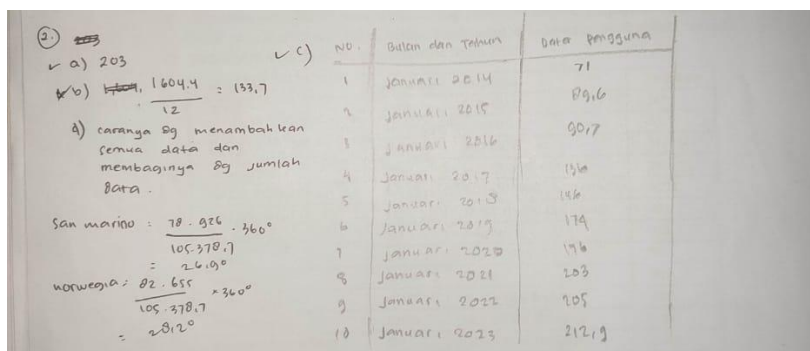 2.
✓ a) 203
b) 1604.4 / 12 = 133,7
d) caranya dg menambahkan
semua data dan
membaginya dg jumlah
data.
San marino : 78.926 / 105.378,7 . 360°
= 26,9°
norwegia : 82.655 / 105.378,7 × 360°
= 28,2°
✓ c)
NO. Bulan dan Tahun Data Pengguna
1 Januari 2014 71
2 Januari 2015 89,6
3 Januari 2016 90,7
4 Januari 2017 136
5 Januari 2018 146
6 Januari 2019 174
7 Januari 2020 196
8 Januari 2021 203
9 Januari 2022 205
10 Januari 2023 212,9